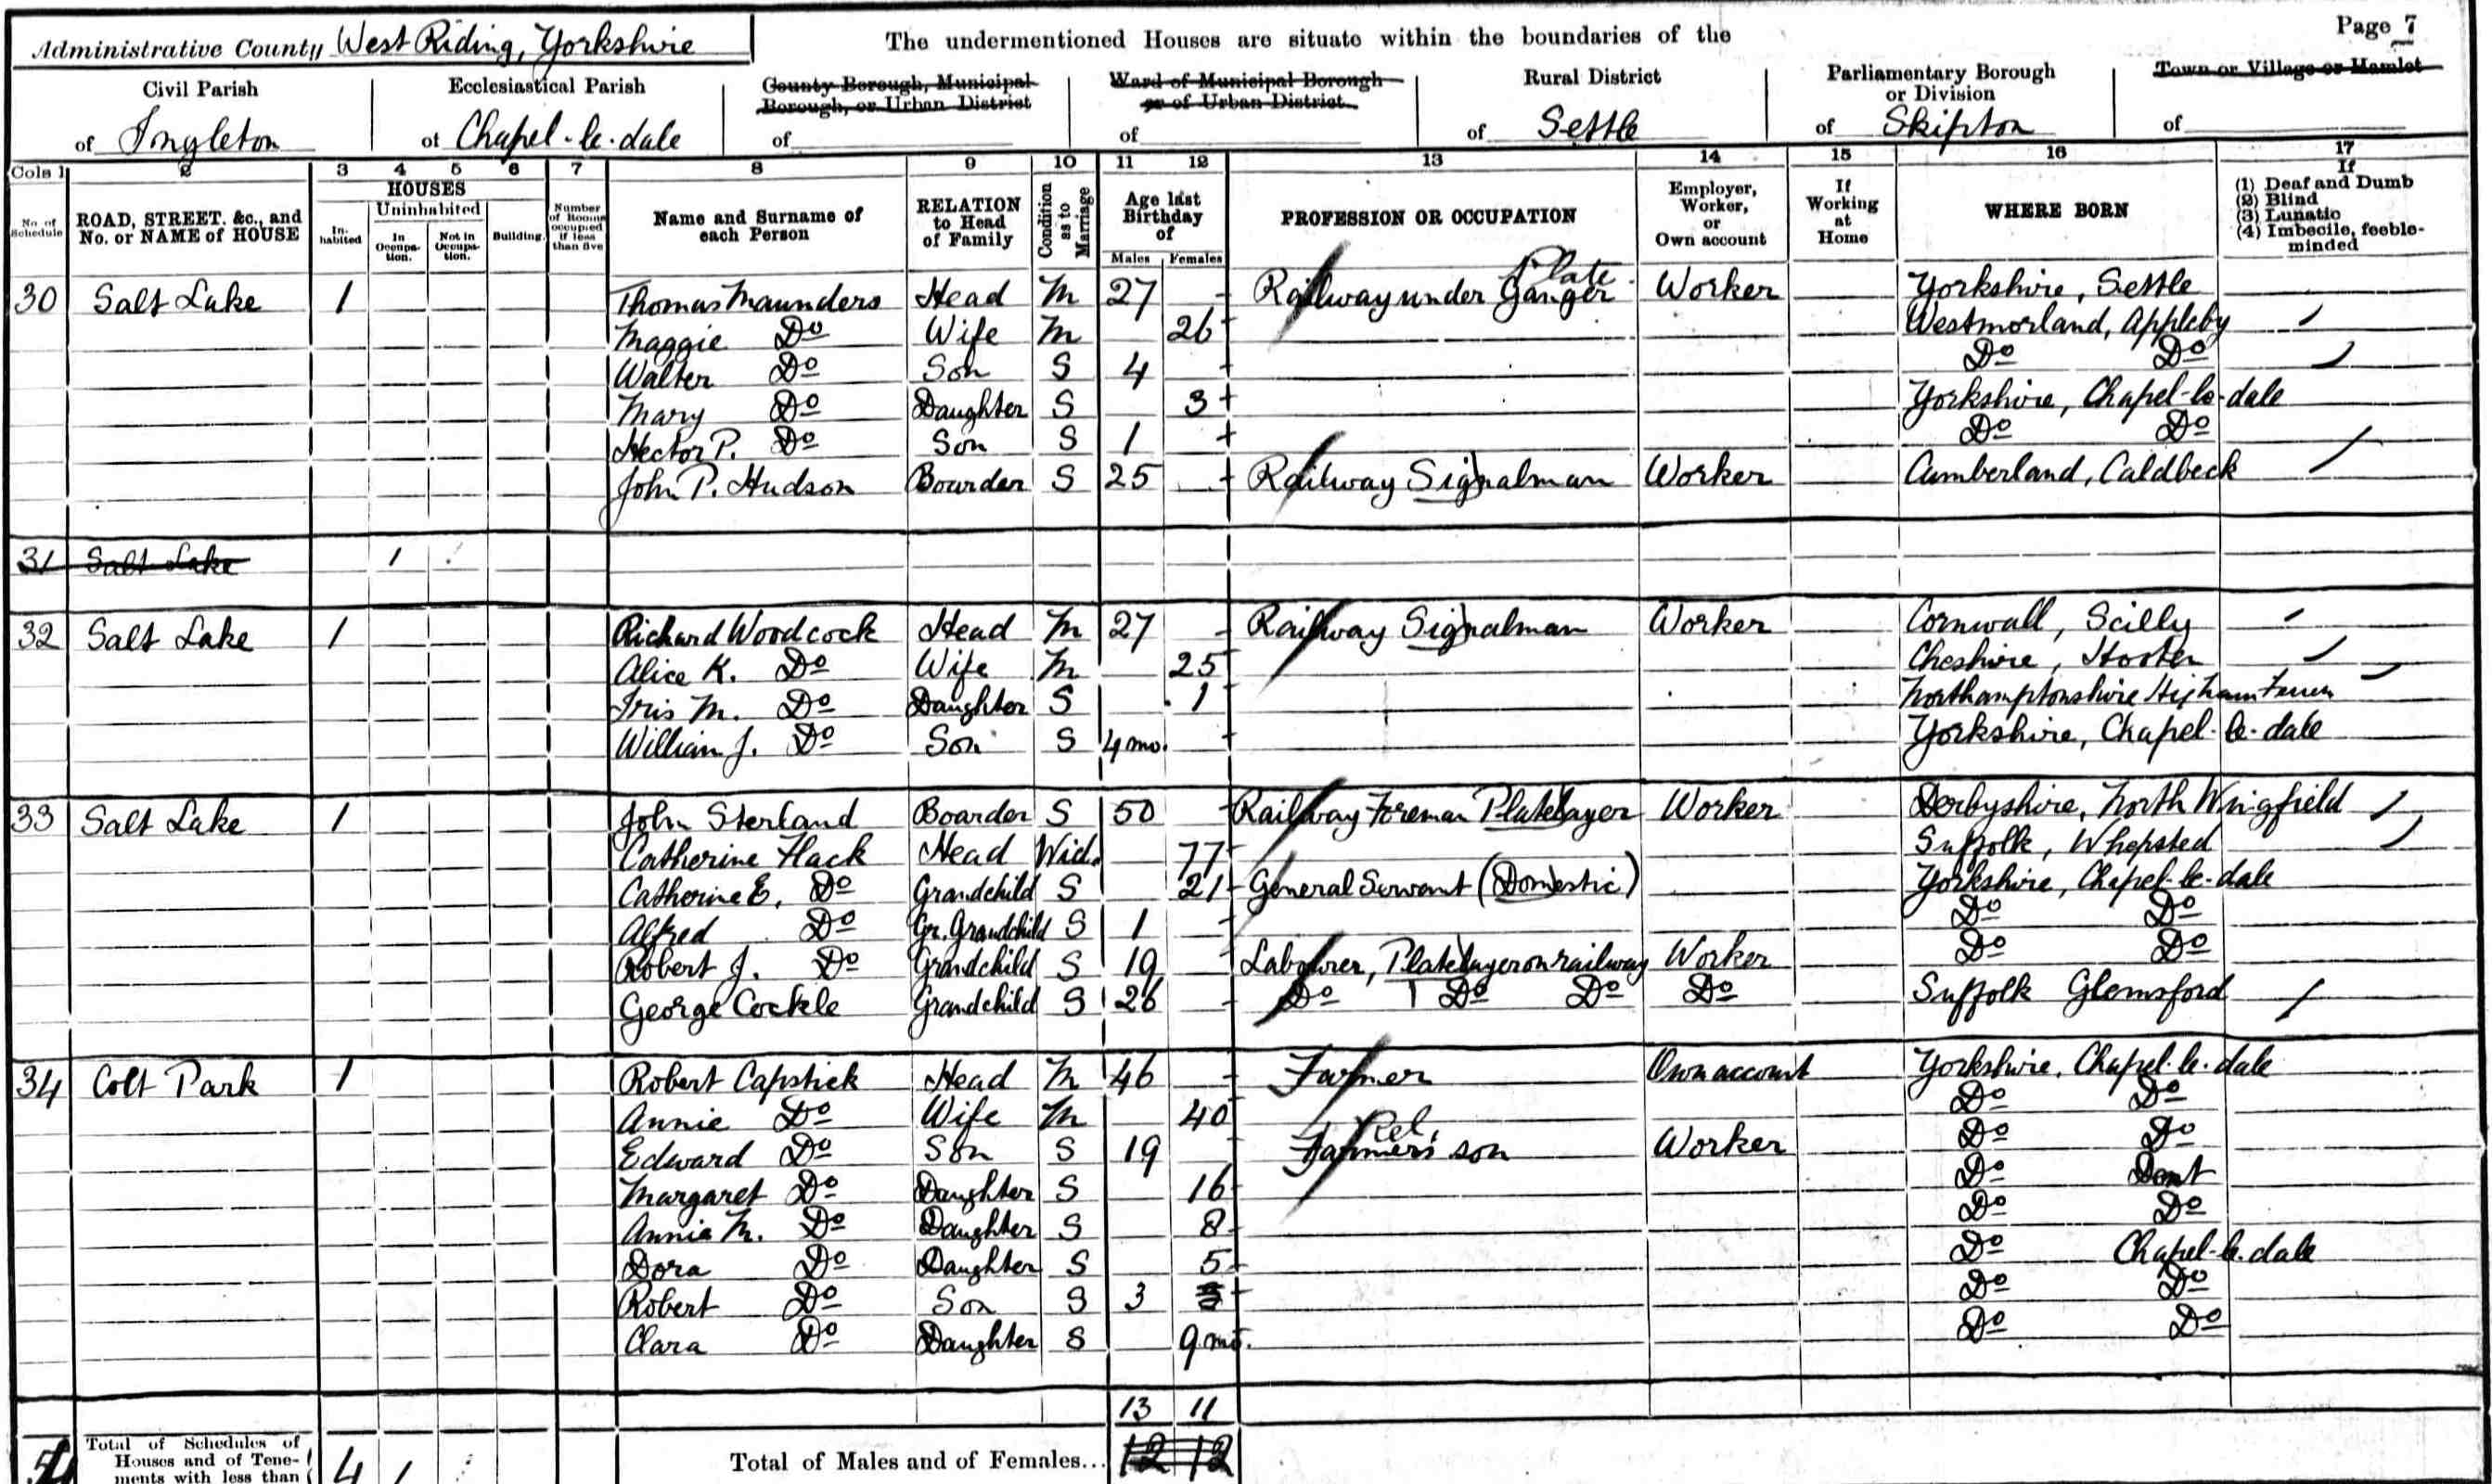 Administrative County West Riding, Yorkshire The undermentioned Houses are situate within the boundaries of the Page 7
Civil Parish of Ingleton
Ecclesiastical Parish of Chapel-le-dale
County Borough, Municipal Borough, or Urban District of
Ward of Municipal Borough or of Urban District of
Rural District of Settle
Parliamentary Borough or Division of Skipton
Town or Village or Hamlet of
Cols 1 2 3 4 5 6 7 8 9 10 11 12 13 14 15 16 17
No. of Schedule
ROAD, STREET, &c., and No. or NAME of HOUSE
HOUSES
Inhabited
Uninhabited
In Occupation.
Not in Occupation.
Building.
Number of Rooms occupied if less than five
Name and Surname of each Person
RELATION to Head of Family
Condition as to Marriage
Age last Birthday of
Males Females
PROFESSION OR OCCUPATION
Employer, Worker, or Own account
If Working at Home
WHERE BORN
If
(1) Deaf and Dumb
(2) Blind
(3) Lunatic
(4) Imbecile, feeble-minded
30 Salt Lake 1 Thomas Maunders Head M 27 Railway under Ganger Plate Worker Yorkshire, Settle
Maggie Do Wife M 26 Westmorland, Appleby
Walter Do Son S 4 Do Do
Mary Do Daughter S 3 Yorkshire, Chapel-le-dale
Hector P. Do Son S 1 Do Do
John P. Hudson Boarder S 25 Railway Signalman Worker Cumberland, Caldbeck
31 Salt Lake 1
32 Salt Lake 1 Richard Woodcock Head M 27 Railway Signalman Worker Cornwall, Scilly
Alice K. Do Wife M 25 Cheshire, Hooton
Iris M. Do Daughter S 1 Northamptonshire Higham
William J. Do Son S 4 mo. Yorkshire, Chapel-le-dale
33 Salt Lake 1 John Sterland Boarder S 50 Railway Foreman Platelayer Worker Derbyshire, North Wingfield
Catherine Flack Head Wid. 77 Suffolk, Whepsted
Catherine E. Do Grandchild S 21 General Servant (Domestic) Yorkshire, Chapel-le-dale
Alfred Do Gr. Grandchild S 1 Do Do
Robert J. Do Grandchild S 19 Labourer, Platelayer on railway Worker Do Do
George Cockle Grandchild S 26 Do Do Do Do Suffolk Glemsford
34 Colt Park 1 Robert Capstick Head M 46 Farmer Own account Yorkshire, Chapel-le-dale
Annie Do Wife M 40 Do Do
Edward Do Son S 19 Farmer's son Rel. Worker Do Do
Margaret Do Daughter S 16 Do Dent
Annie M. Do Daughter S 8 Do Do
Dora Do Daughter S 5 Do Chapel-le-dale
Robert Do Son S 3 3 Do Do
Clara Do Daughter S 9 mo. Do Do
13 11
Total of Schedules of Houses and of Tenements with less than 4 1 Total of Males and of Females... 12 12